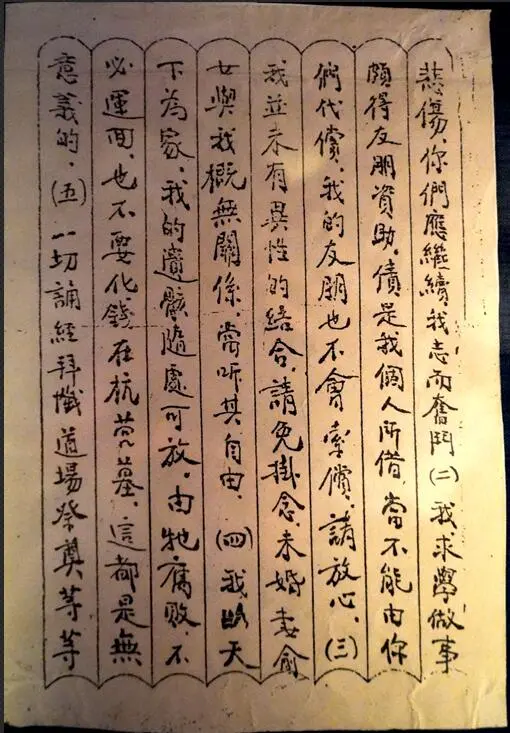 悲傷，你們應繼續我志而奮鬥(二)我求學做事
頗得友朋資助，債是我個人所借，當不能由你
們代償，我的友朋也不會索償，請放心，(三)
我並未有異性的結合，請免掛念，未婚妻俞
女與我概無關係，當听其自由，(四)我以天
下為家，我的遺骸隨處可放，由牠腐敗，不
必運回，也不要化錢在杭營墓，這都是無
意義的，(五)一切誦經拜懺道場祭奠等等